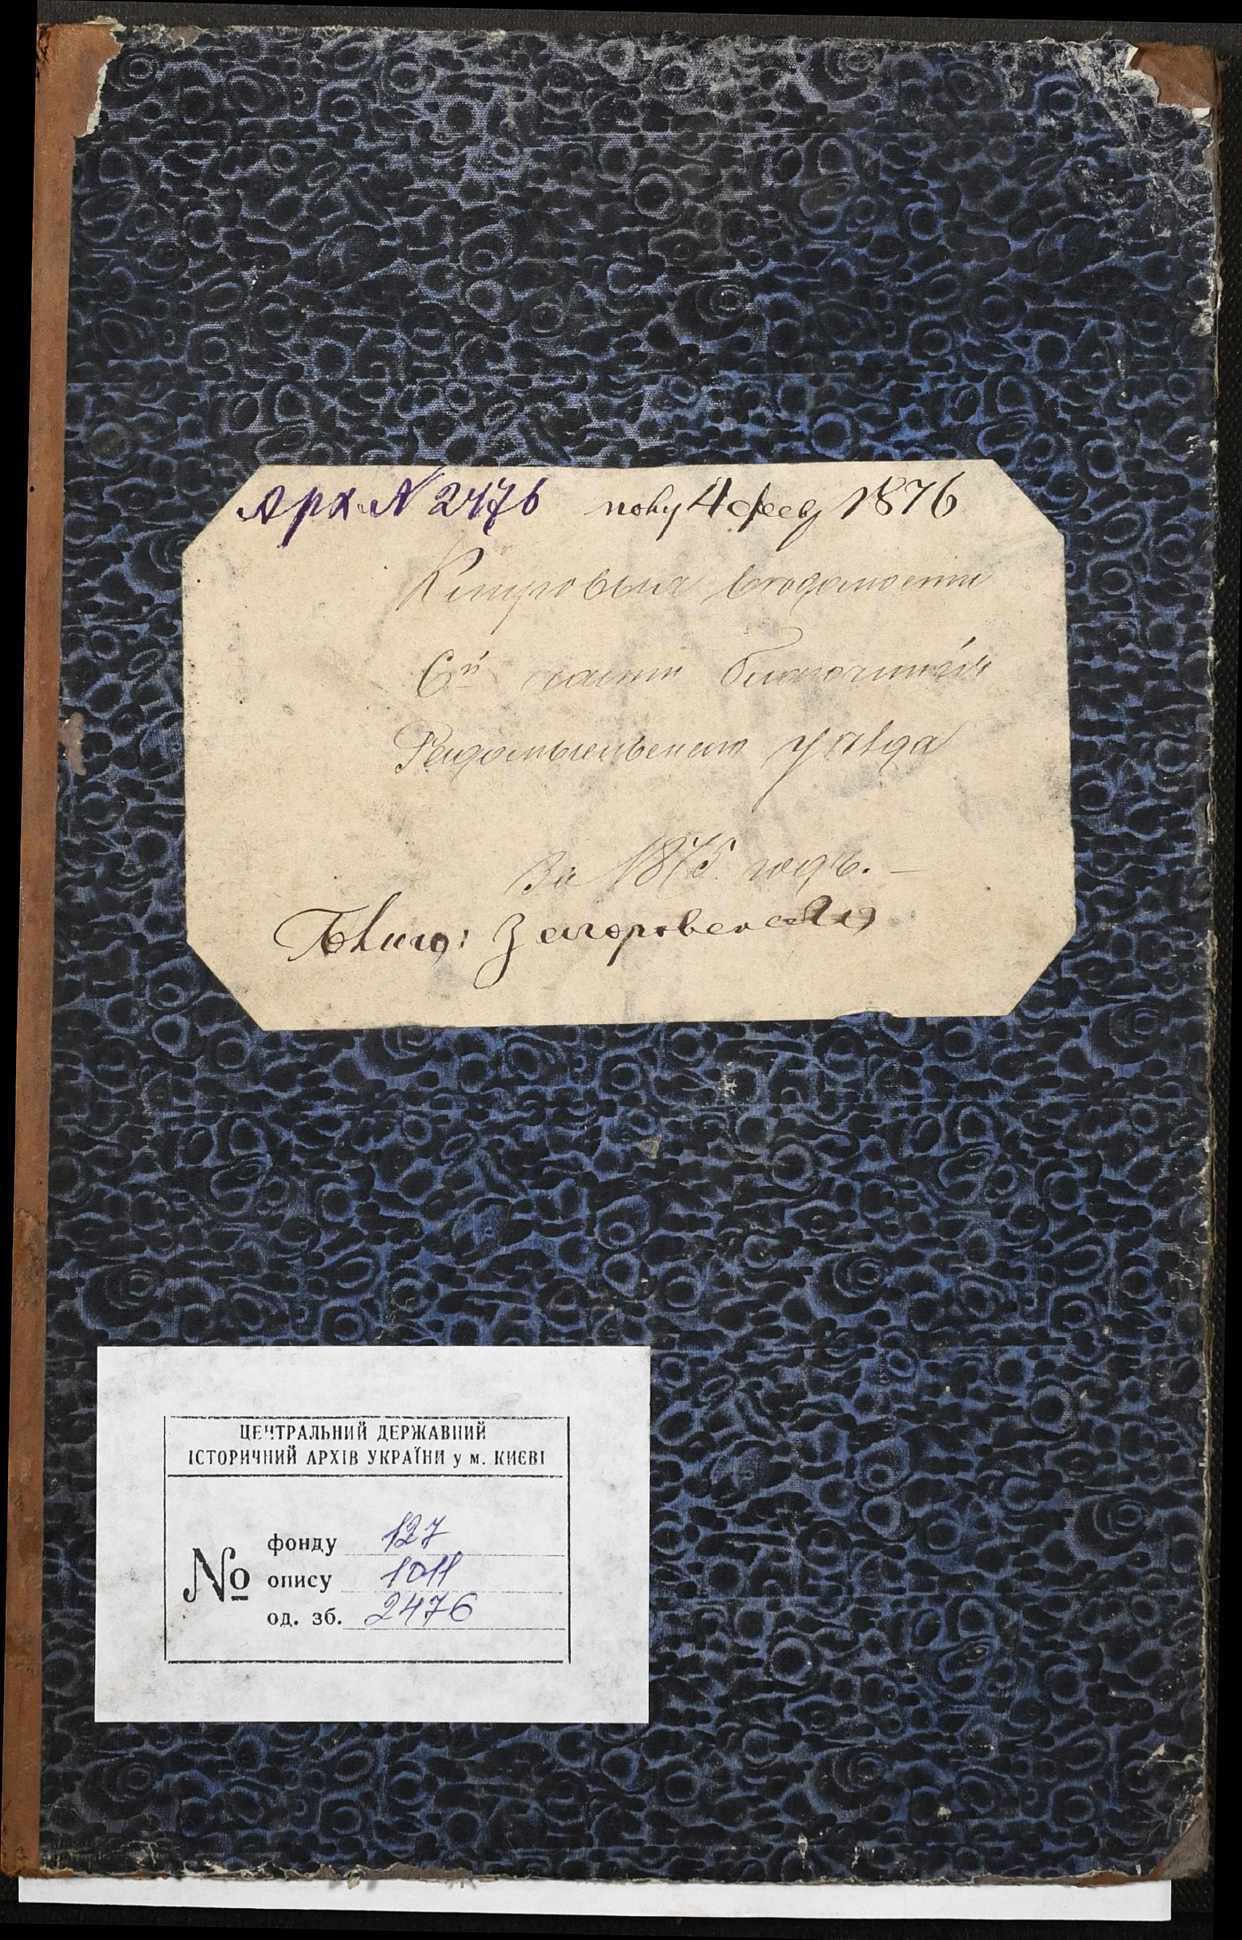 Арх. № 2476 полу 4 фев 1876
Клировыя вѣдомости
6й части благочинія
Радомысльскаго уѣзда
За 1875 годъ. —
Благо: Загоровскій
ЦЕНТРАЛЬНИЙ ДЕРЖАВНИЙ
ІСТОРИЧНИЙ АРХІВ УКРАЇНИ у м. КИЄВІ
№
фонду 127
опису 1011
од. зб. 2476